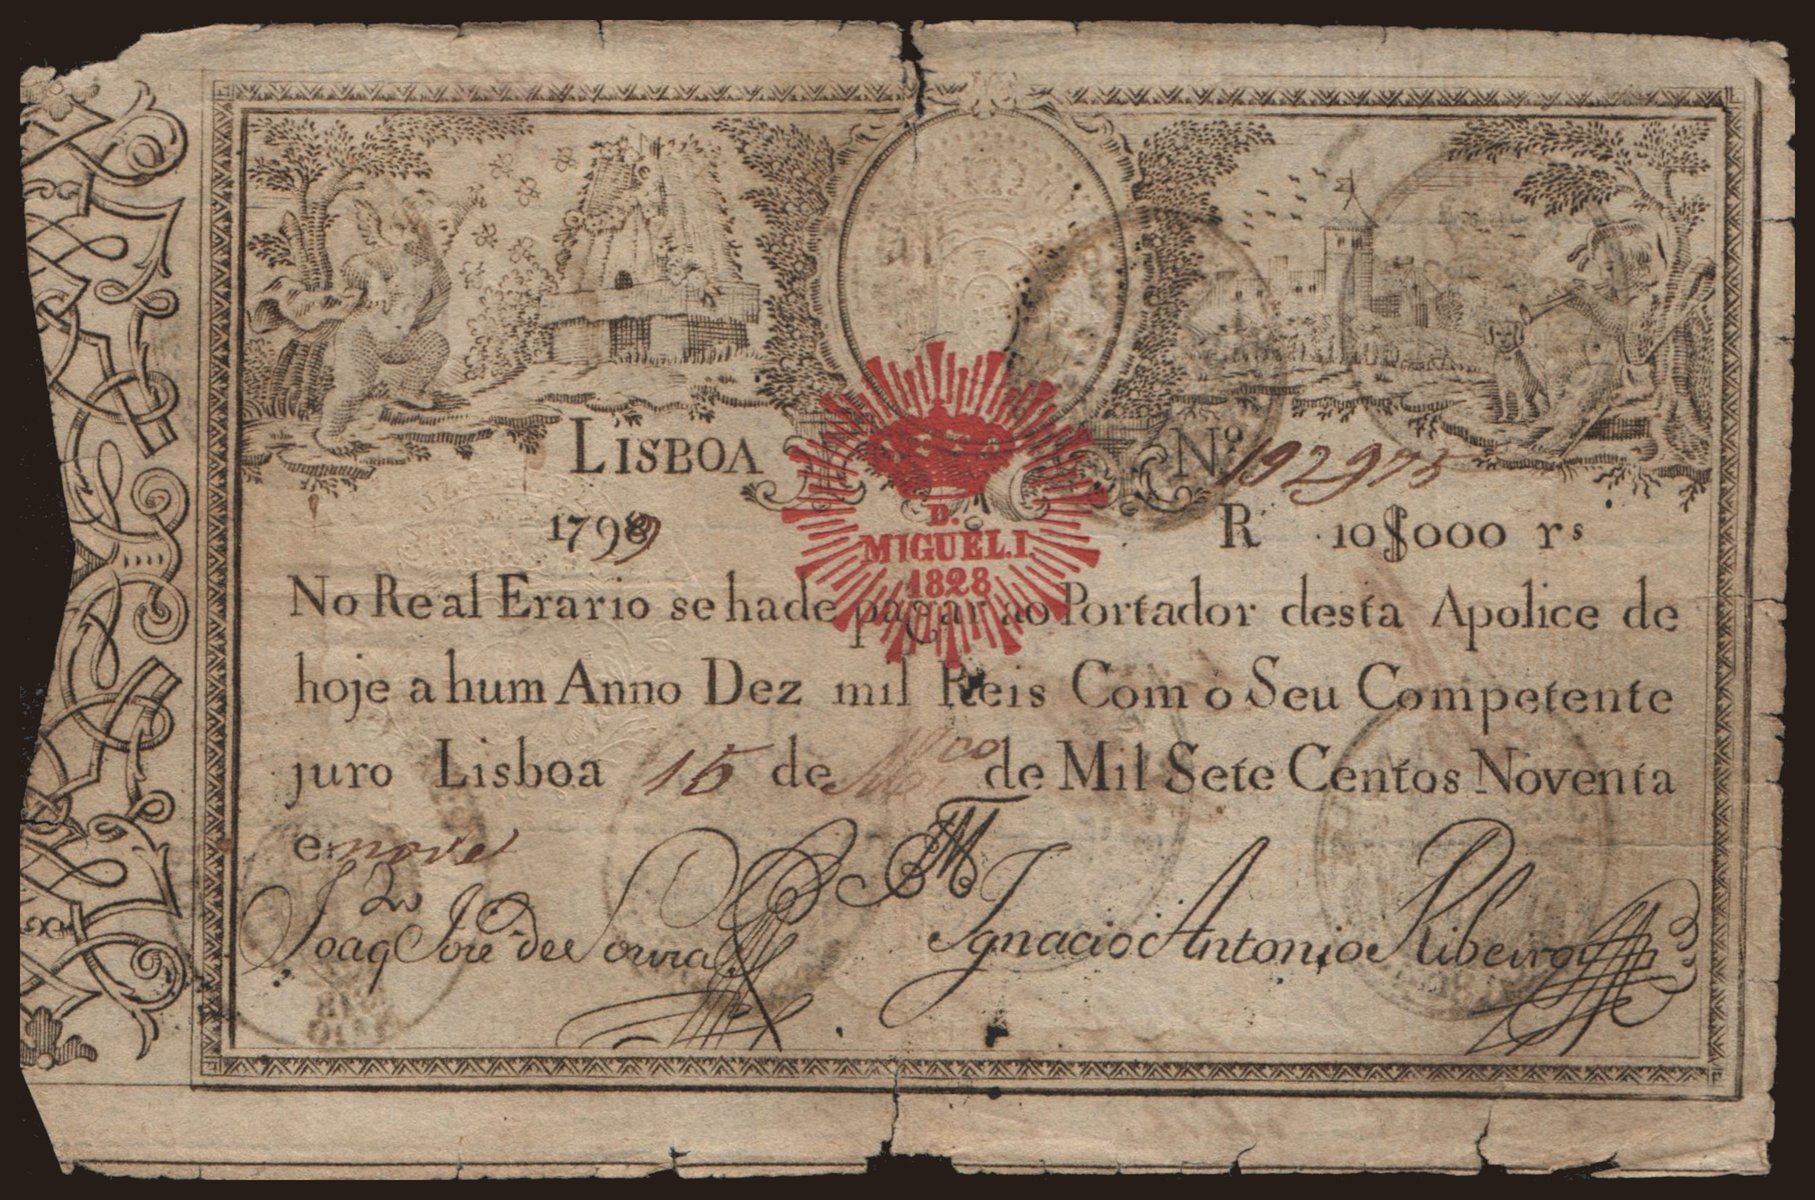 LISBOA
Nº 192975
1799
R 10$000 rs
D.
MIGUEL.I
1828
No Real Erario se hade pagar ao Portador desta Apolice de
hoje a hum Anno Dez mil Reis Com o Seu Competente
juro Lisboa 15 de Mço de Mil Sete Centos Noventa
e nove
Joaqm José de Souza
Ignacio Antonio Ribeiro